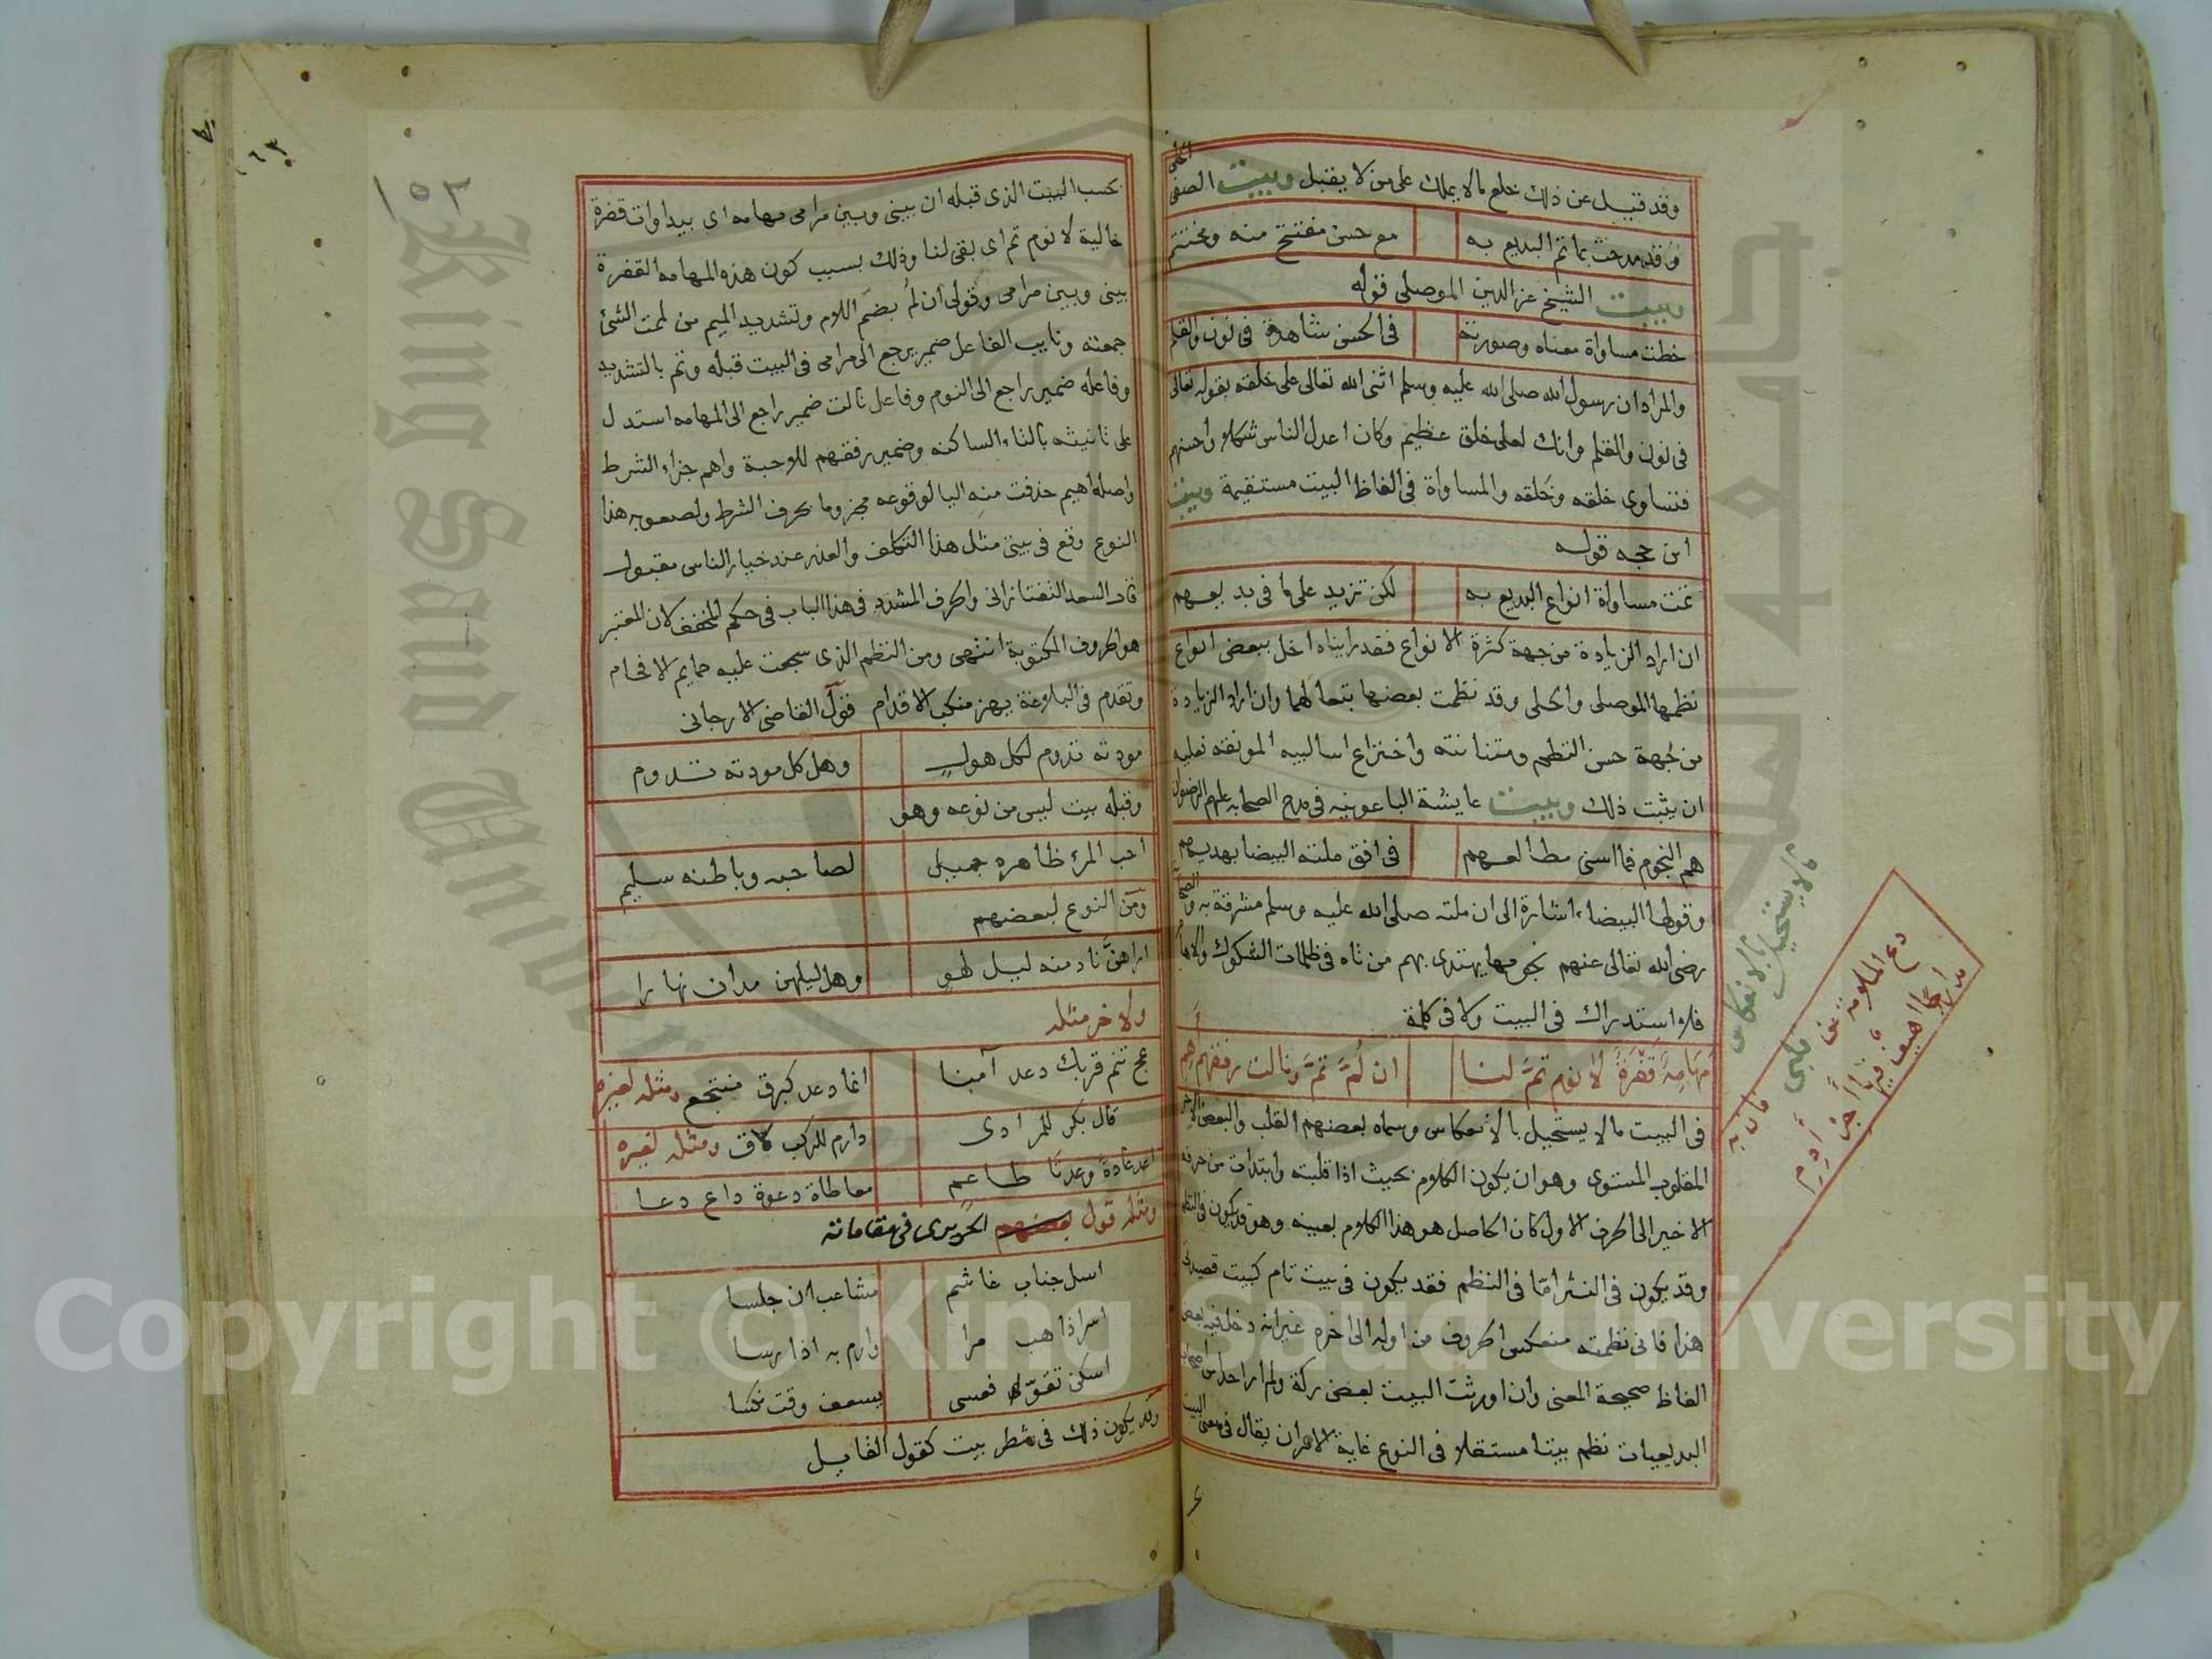 وقد قيل عن ذلك خلع ما لا يملك على من لا يقبل وبيت الصفى الحلى
وقد مدحت بما تم البديع به مع حسن مفتتح منه ومختتم
وبيت الشيخ عز الدين الموصلى قوله
خطت مساواة معناه وصورته فى الحسن شاهدة فى نون والقلم
والمراد ان رسول الله صلى الله عليه وسلم اثنى الله تعالى على خلقه بقوله تعالى
فى نون والقلم وانك لعلى خلق عظيم وكان اعدل الناس شكلا واحسنهم
فتساوى خلقه وخلقه والمساواة فى الفاظ البيت مستقيمة وبيت
ابن حجه قوله
تمت مساواة انواع البديع به لكن تزيد على ما فى بديعهم
ان اراد الزيادة من جهة كثرة الانواع فقد رايناه اخل ببعض انواع
نظمها الموصلى والحلى وقد نظمت بعضها تبعا لهما وان اراد الزيادة
من جهة حسن النظم ومتنانته واختراع اساليبه المونقه فعليه
ان يثبت ذلك وبيت عايشة الباعونيه فى مدح الصحابه عليهم الرضوان
هم النجوم فما اسنى مطالعهم فى افق ملته البيضا بهديهم
وقولها البيضاء اشارة الى ان ملته صلى الله عليه وسلم مشرقة به والصحابة
رضى الله تعالى عنهم نجومها يهتدى بهم من تاه فى ظلمات الشكوك والاوهام
فلا استدراك فى البيت ولا فى كلمة
مَهَامِهٌ قَفْرَةٌ لا نوم تمَّ لنا ان لُمَّ تمَّ ونالت رفقهم اهِم
فى البيت ما لا يستحيل بالانعكاس وسماه بعضهم القلب والبعض الاخر
المقلوب المستوى وهو ان يكون الكلام بحيث اذا قلبته وابتدات من حرفه
الاخير الى الحرف الاول كان الحاصل هو هذا الكلام بعينه وهو قد يكون فى النظم
وقد يكون فى النثر امّا فى النظم فقد يكون فى بيت تام كبيت قصيدتى
هذا فانى نظمته منعكس الحروف من اوله الى اخره غير انه دخل فيه بعض
الفاظ صحيحة المعنى وان اورثت البيت بعض ركة ولم ار احدا من اصحاب
البديعيات نظم بيتا مستقلا فى النوع غاية الامر ان يقال فى معنى البيت
ما لا يستحيل بالانعكاس
دع الملامة عن قلبى فان به
١٥٢
بحسب البيت الذى قبله ان بينى وبين مرامى مهامه اى بيداوات قفرة
خالية لا نوم تم اى بقى لنا وذلك بسبب كون هذه المهامه القفرة
بينى وبين مرامى وقولى ان لُم بضم اللام وتشديد الميم من لممت الشئ
جمعته ونايب الفاعل ضمير يرجع الى مرامى فى البيت قبله وتم بالتشديد
وفاعله ضمير راجع الى النوم وفاعل نالت ضمير راجع الى المهامه استدل
على تانيثه بالتاء الساكنه وضمير رفقهم للاحبة واهم جزاء الشرط
واصله اهيم حذفت منه اليا لوقوعه مجزوما بحرف الشرط ولصعوبه هذا
النوع وقع فى بيتى مثل هذا التكلف والعذر عند خيار الناس مقبول
قال السعد التفتازانى والحرف المشدد فى هذا الباب فى حكم المخفف لان المعتبر
هو الحروف المكتوبة انتهى ومن النظم الذى سجعت عليه حمايم الافحام
وتقدم فى البلاغة يهز منكب الاقدام قول القاضى الارجانى
مودته تدوم لكل هول وهل كل مودته تدوم
وقبله بيت ليس من نوعه وهو
احب المرء ظاهره جميل لصاحبه وباطنه سليم
ومن النوع لبعضهم
اراهنّ نادمنه ليل لهو وهل ليلهن مدان نهارا
ولاخر مثله
عج تنم قربك دعد آمنا انما دعد كبرق منتجع ومثله لغيره
قال بكر للمرادى دارم للركب لاق ومثله لغيره
اعد عادة وعدنا طاعم معاطاة دعوة داع دعا
ومثله قول بعضهم الحريرى فى مقاماته
اسل جناب غاشم مشاغب ان جلسا
اسر اذا هب مرا وارم به اذا رسا
اسكن تقوّ فعسى يسعف وقت نكسا
وقد يكون ذلك فى شطر بيت كقول القايل
Copyright © King Saud University
King Saud University